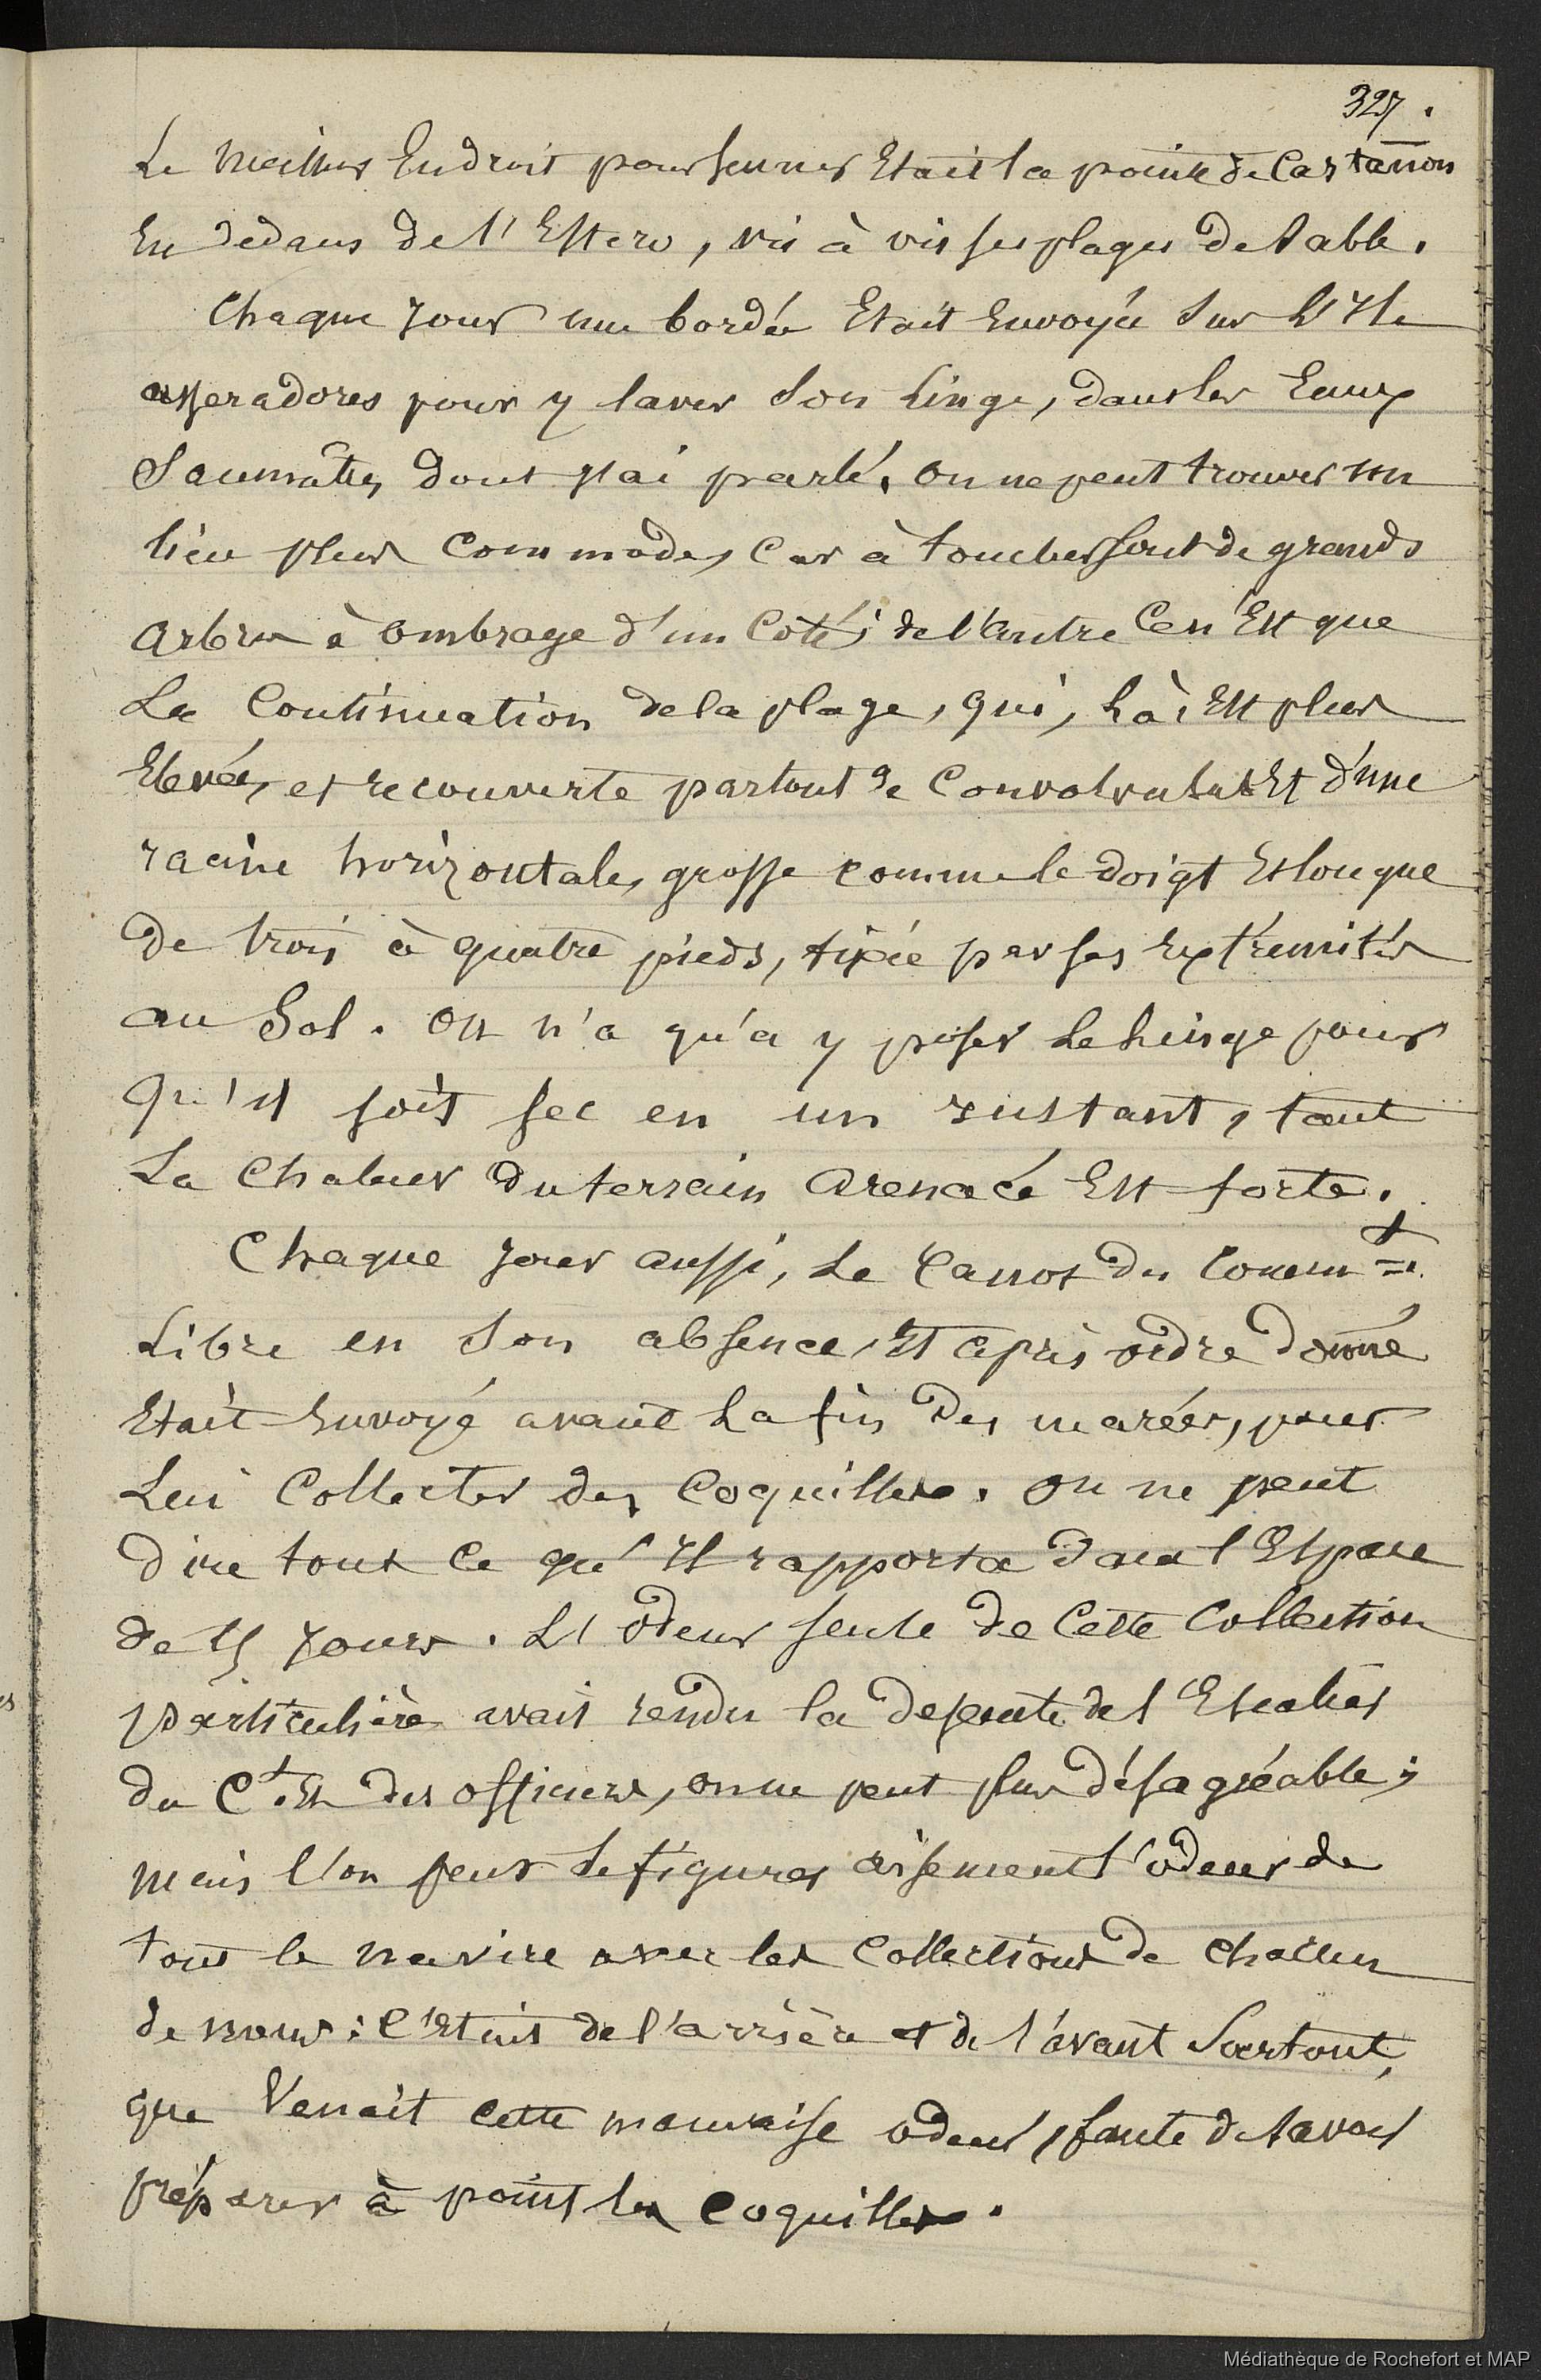 327.
Le meilleur Endroit pour senner Etait la pointe de Castañon
En dedans de l'Estero, vis à vis ses plages de sable.
Chaque Jour une bordée Etait Envoyée sur l'Ile
asseradores pour y laver son Linge, dans les Eaux
Saumâtres dont j'ai parlé. on ne peut trouver un
lieu plus commode, car à toucher sont de grands
arbres à ombrage d'un Coté; de l'autre Ce n'Est que
La Continuation de la plage, qui, Là, Est plus
Elevée, et recouverte partout de Convolvulus Et d'une
racine horizontale, grosse comme le doigt Et longue
de trois à quatre pieds, fixée par ses Extrémités
au Sol. On n'a qu'a y poser Le Linge pour
qu'il soit sec en un instant, tant
La Chaleur du terrain arenacé Est forte.
Chaque Jour aussi, Le Canot du Commt
Libre en son absence, Et après ordre donné
Etait Envoyé avant La fin des marées, pour
Lui Collecter des Coquilles. On ne peut
dire tout Ce qu'Il rapporta dans l'Espace
de 15 Jours. L'odeur seule de Cette Collection
particulière avait rendu la descente de l'Escalier
du Ct. Et des officiers, on ne peut plus désagréable;
mais l'on peut se figurer aisement l'odeur de
tout le navire avec les Collections de chacun
de nous: C'Etait de l'arrière et de l'avant Surtout,
que Venait cette mauvaise odeur, faute de savoir
préparer à point les Coquilles.
Médiathèque de Rochefort et MAP